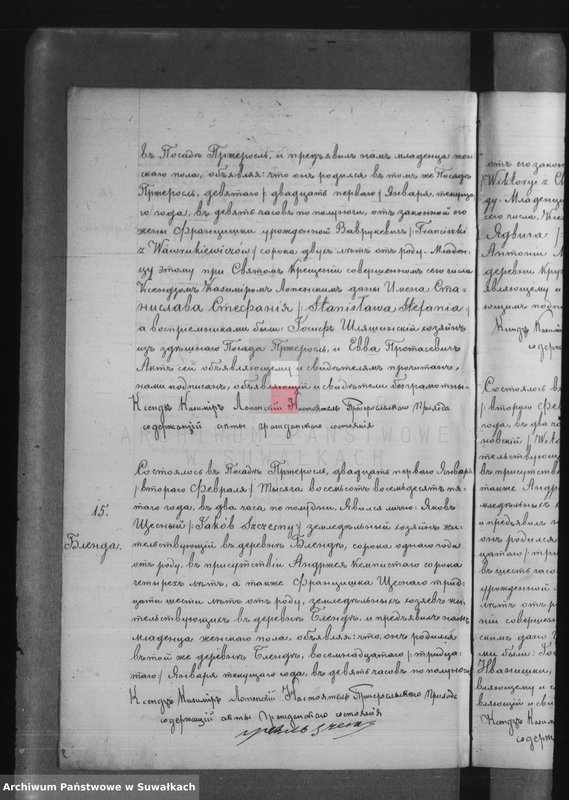 въ Посадѣ Пржеросль, и предъявилъ намъ младенца жен-
скаго пола, объявляя: что онъ родился въ томъ же Посадѣ
Пржеросль, девятаго / двадцать перваго / Января текуща-
го года, въ девять часовъ по полуночи, отъ законной его
жены Францишки урожденной Ваврукевичъ / Franciszki
z Wawrukiewiczów / сорока двухъ лѣтъ отъ роду. Младен-
цу этому при Святомъ Крещеніи совершенномъ сего числа
Ксендзомъ Казимиромъ Лопенскимъ даны Имена Ста-
нислава Стефанія / Stanisława Stefania /
а воспріемниками были: Госифъ Шляшинскій хозяинъ
изъ здѣшняго Посада Пржеросль, и Евва Протасевичъ
Актъ сей объявляющему и свидѣтелямъ прочитанъ,
нами подписанъ, объявляющій и свидѣтели безграмотны.-
Ксендзъ Казиміръ Лопенскій Настоятель Пржерослькаго Прихода
содержащій акты гражданскаго состоянія
ARCHIWUM PAŃSTWOWE
W SUWAŁKACH
15.
Бленда.
Состоялось въ Посадѣ Пржеросль, двадцать перваго Января
/ втораго Февраля / Тысяча восемьсотъ восемьдесятъ пя-
таго года, въ два часа по полудни, Явился лично: Яковъ
Щесный / Jakób Szczesny / земледѣльный хозяинъ жи-
тельствующій въ деревнѣ Блендѣ, сорока одного года
отъ роду, въ присутствіи Андржея Кемпистаго сорока
четырехъ лѣтъ, а также Францишка Щеснаго трид-
цати шести лѣтъ отъ роду, земледѣльныхъ хозяевъ жи-
тельствующихъ въ деревнѣ Блендѣ, и предъявилъ намъ
младенца женскаго пола, объявляя: что онъ родился
въ той же деревнѣ Блендѣ, восемнадцатаго / тридца-
таго / Января текущаго года, въ девять часовъ по полуночи
Ксендзъ Казиміръ Лопенскій Настоятель Пржерослькаго Прихода
содержащій акты Гражданскаго состоянія
отъ его законн
Wiktoryi z
ду. Младенц
сего числа, Ксен
Ядвига /
Антони
деревни Кру
являющему и
ющимъ подпи
Ксендзъ Казим
содерж
Состоялось въ
/ втораго Фев
года, въ два ча
новскій / Wik
тельствующ
въ присутствіи
также Андр
медѣльныхъ
и предъявилъ н
онъ родился
цатаго / три
въ шесть часо
урожденной
лѣтъ отъ р
ній соверше
скимъ дано
ми были: Гос
Иванишки,
вляющему и с
вляющій и сви
Ксендзъ Казим
содерж
Archiwum Państwowe w Suwałkach